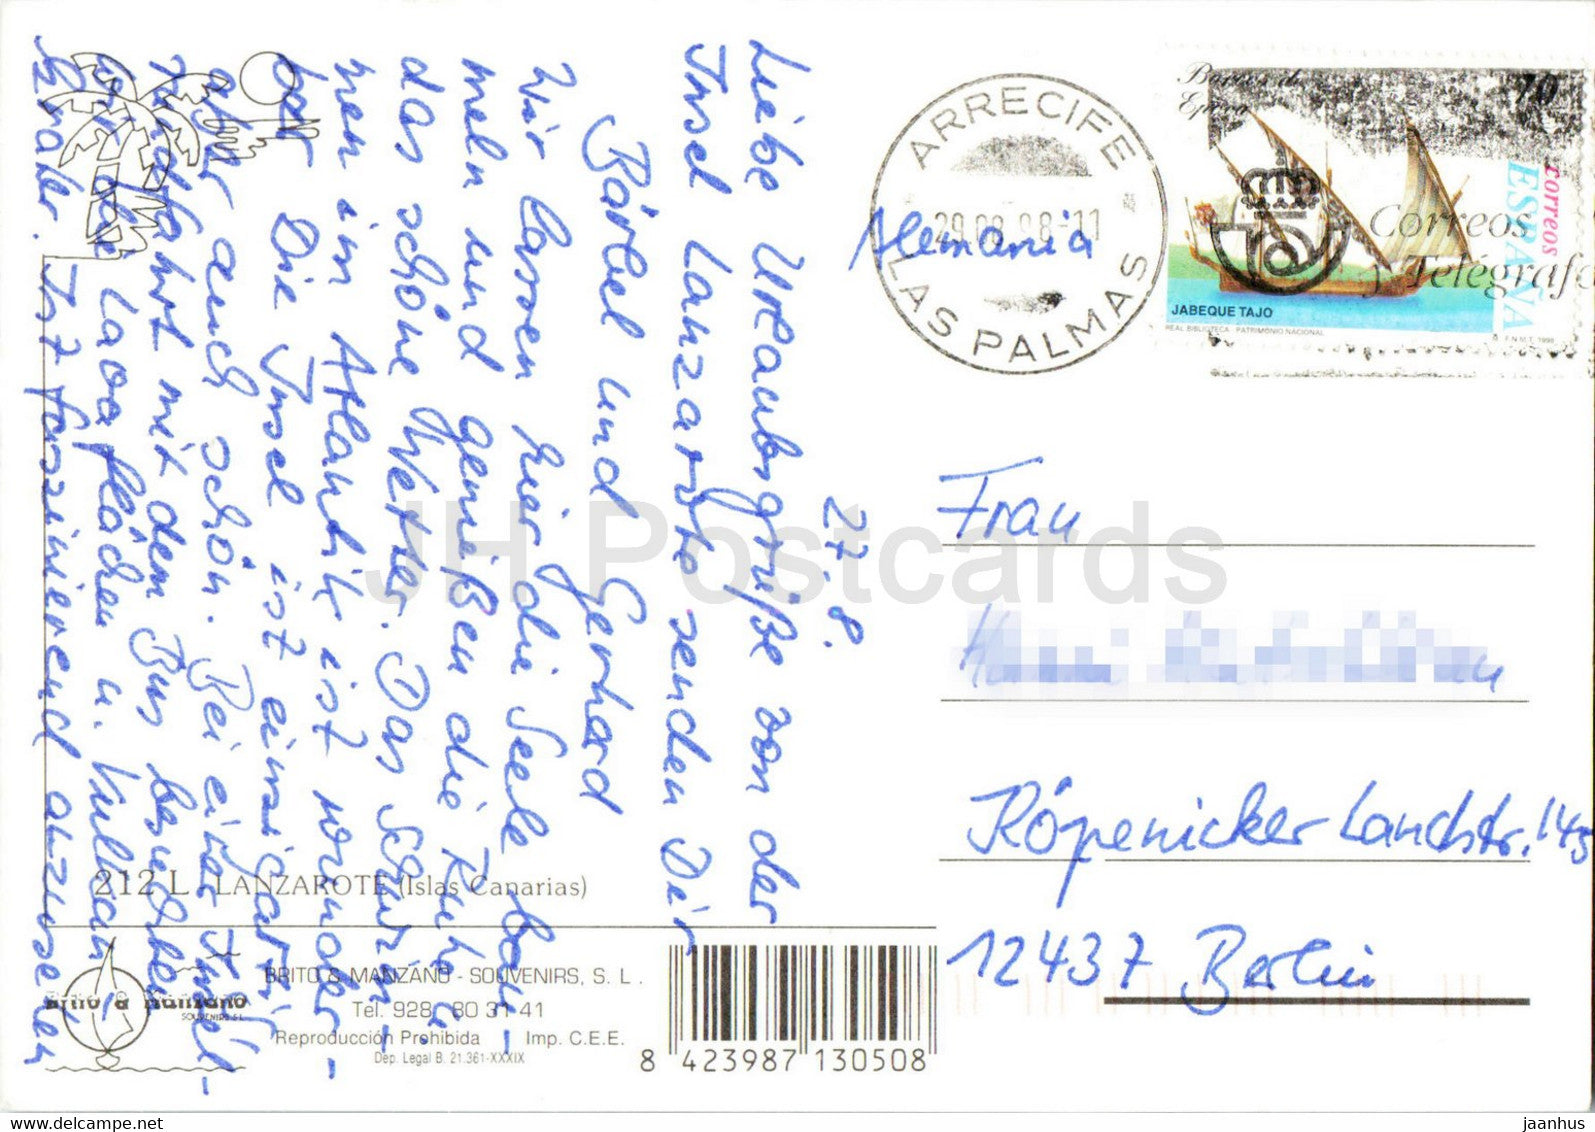 27.8.
Liebe Urlaubsgrüße von der
Insel Lanzarote senden Dir
Bärbel und Gerhard
Wir lassen hier die Seele bau-
meln und genießen die Ruhe u.
das schöne Wetter. Das Schwim-
men im Atlantik ist wunder-
bar. Die Insel ist einzigartig
aber auch schön. Bei einer Insel-
rundfahrt mit dem Bus besuchten
wir die Lavaflächen u. Vulkan-
krater. Ist faszinierend anzusehen
212 L. LANZAROTE (Islas Canarias)
brito & manzano
SOUVENIRS S.L.
BRITO & MANZANO - SOUVENIRS, S. L.
Tel. 928 - 80 31 41
Reproducción Prohibida Imp. C.E.E.
Dep. Legal B. 21.361-XXXIX
8 423987 130508
ARRECIFE
LAS PALMAS
Alemania
Barcos de
Epoca
70
correos
ESPAÑA
Correos
Telégrafos
JABEQUE TAJO
REAL BIBLIOTECA - PATRIMONIO NACIONAL
F.N.M.T. 1998
Frau
Köpenicker Landstr. 143
12437 Berlin
JH Postcards
delcampe.net
jaanhus